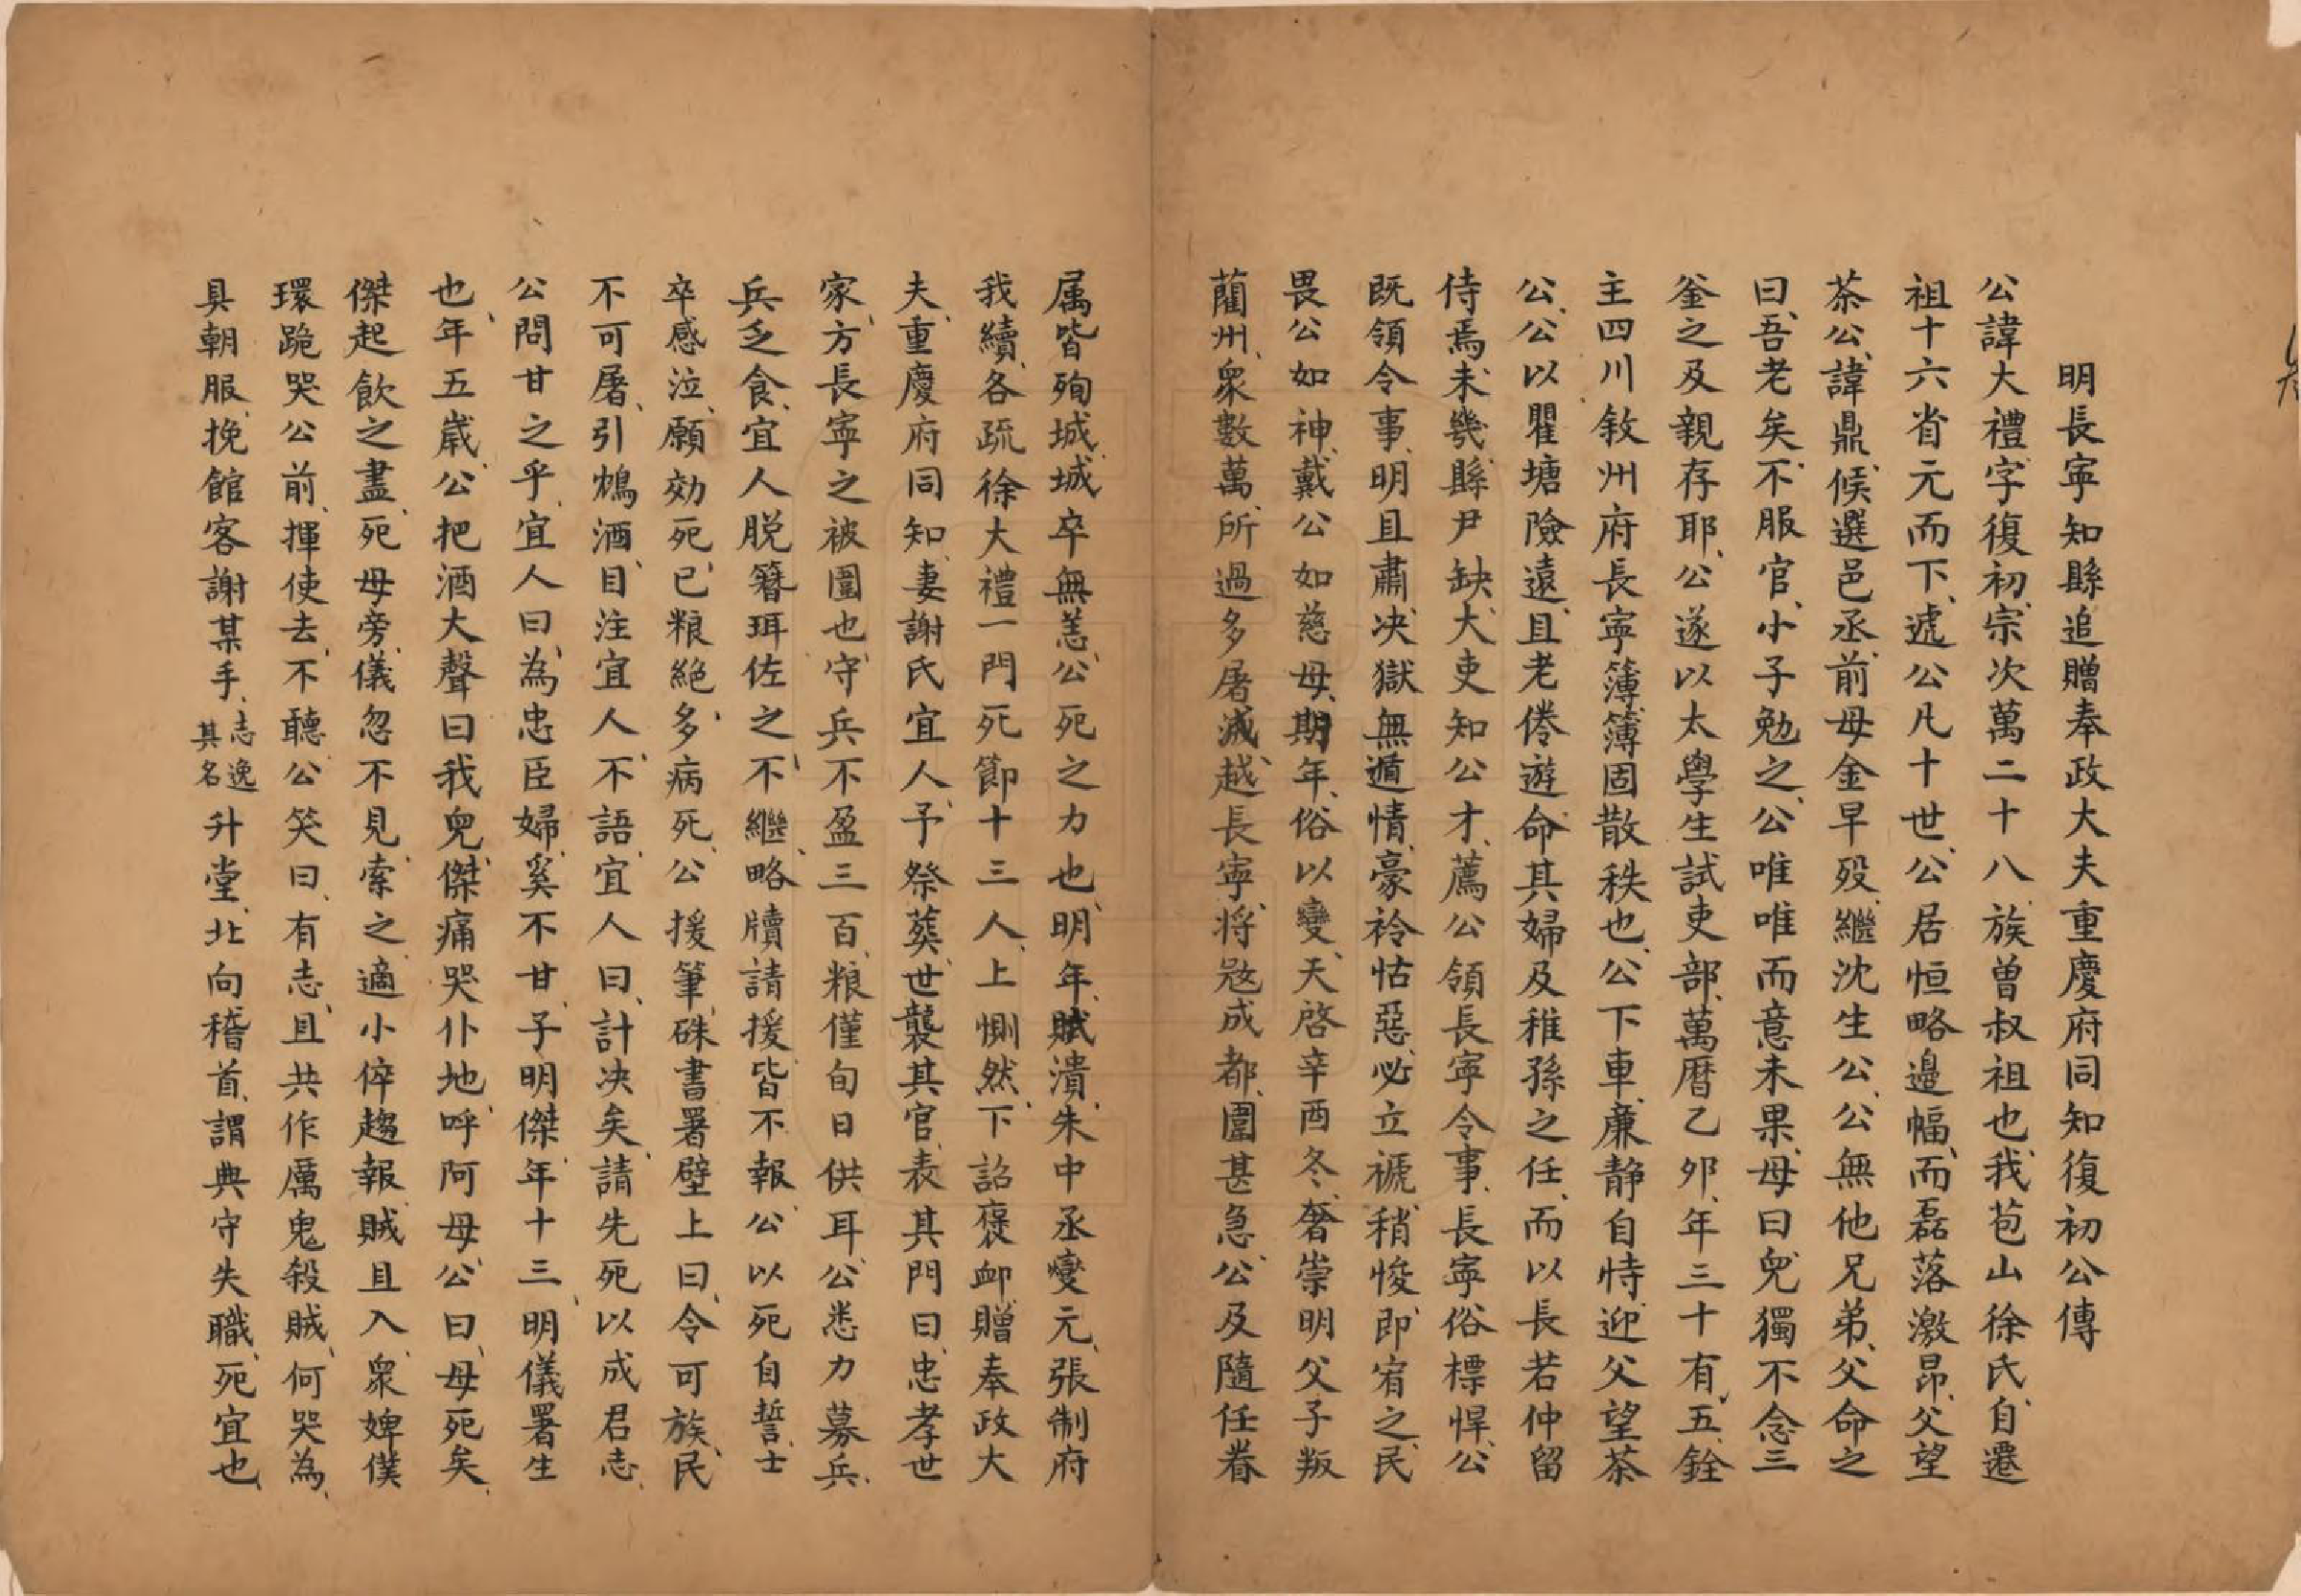 明長寧知縣追贈奉政大夫重慶府同知復初公傳
公諱大禮字復初宗次萬二十八族曾叔祖也我苞山徐氏自遷
祖十六省元而下遞公凡十世公居恒略邉幅而磊落激昂父望
茶公諱鼎候選邑丞前母金早歿繼沈生公公無他兄弟父命之
曰吾老矣不服官小子勉之公唯唯而意未果母曰兒獨不念三
釜之及親存耶公遂以太學生試吏部萬曆乙夘年三十有五銓
主四川敘州府長寧簿簿固散秩也公下車廉静自恃迎父望茶
公公以瞿塘險遠且老倦遊命其婦及稚孫之任而以長若仲留
侍焉未幾縣尹缺大吏知公才薦公領長寧令事長寧俗標悍公
既領令事明且肅决獄無遁情豪衿怙惡必立褫稍悛即宥之民
畏公如神戴公如慈母期年俗以變天啓辛酉冬奢崇明父子叛
藺州衆數萬所過多屠滅越長寧将𡨥成都圍甚急公及隨任眷
属皆殉城城卒無恙公死之力也明年賊潰朱中丞燮元張制府
我續各疏徐大禮一門死節十三人上惻然下詔褒衂贈奉政大
夫重慶府同知妻謝氏宜人予祭葬世襲其官表其門曰忠孝世
家方長寧之被圍也守兵不盈三百粮僅旬日供耳公悉力募兵
兵乏食宜人脱簪珥佐之不繼略牘請援皆不報公以死自誓士
卒感泣願効死已粮絶多病死公援筆硃書署壁上曰令可族民
不可屠引鴆酒目注宜人不語宜人曰計决矣請先死以成君志
公問甘之乎宜人曰為忠臣婦奚不甘子明傑年十三明儀署生
也年五歲公把酒大聲曰我兒傑痛哭仆地呼阿母公曰母死矣
傑起飲之盡死母旁儀忽不見索之適小倅趨報賊且入衆婢僕
環跪哭公前揮使去不聽公笑曰有志且共作厲鬼殺賊何哭為
具朝服挽館客謝某手志逸其名升堂北向稽首謂典守失職死宜也